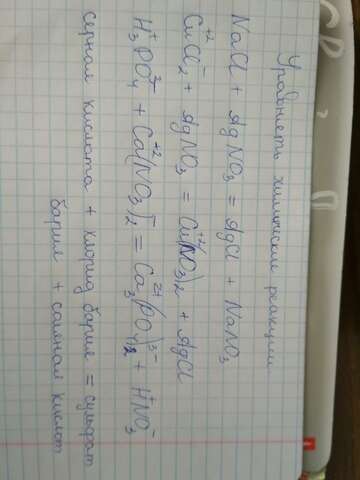 Уравнять химические реакции
NaCl + AgNO₃ = AgCl + NaNO₃
Cu⁺²Cl₂⁻ + AgNO₃ = Cu⁺²(NO₃)₂ + AgCl
H₃⁺PO₄³⁻ + Ca⁺²(NO₃)₂⁻ = Ca₃²⁺(PO₄)₂³⁻ + H⁺NO₃⁻
Серная кислота + хлорид бария = сульфат
бария + соляная кислот